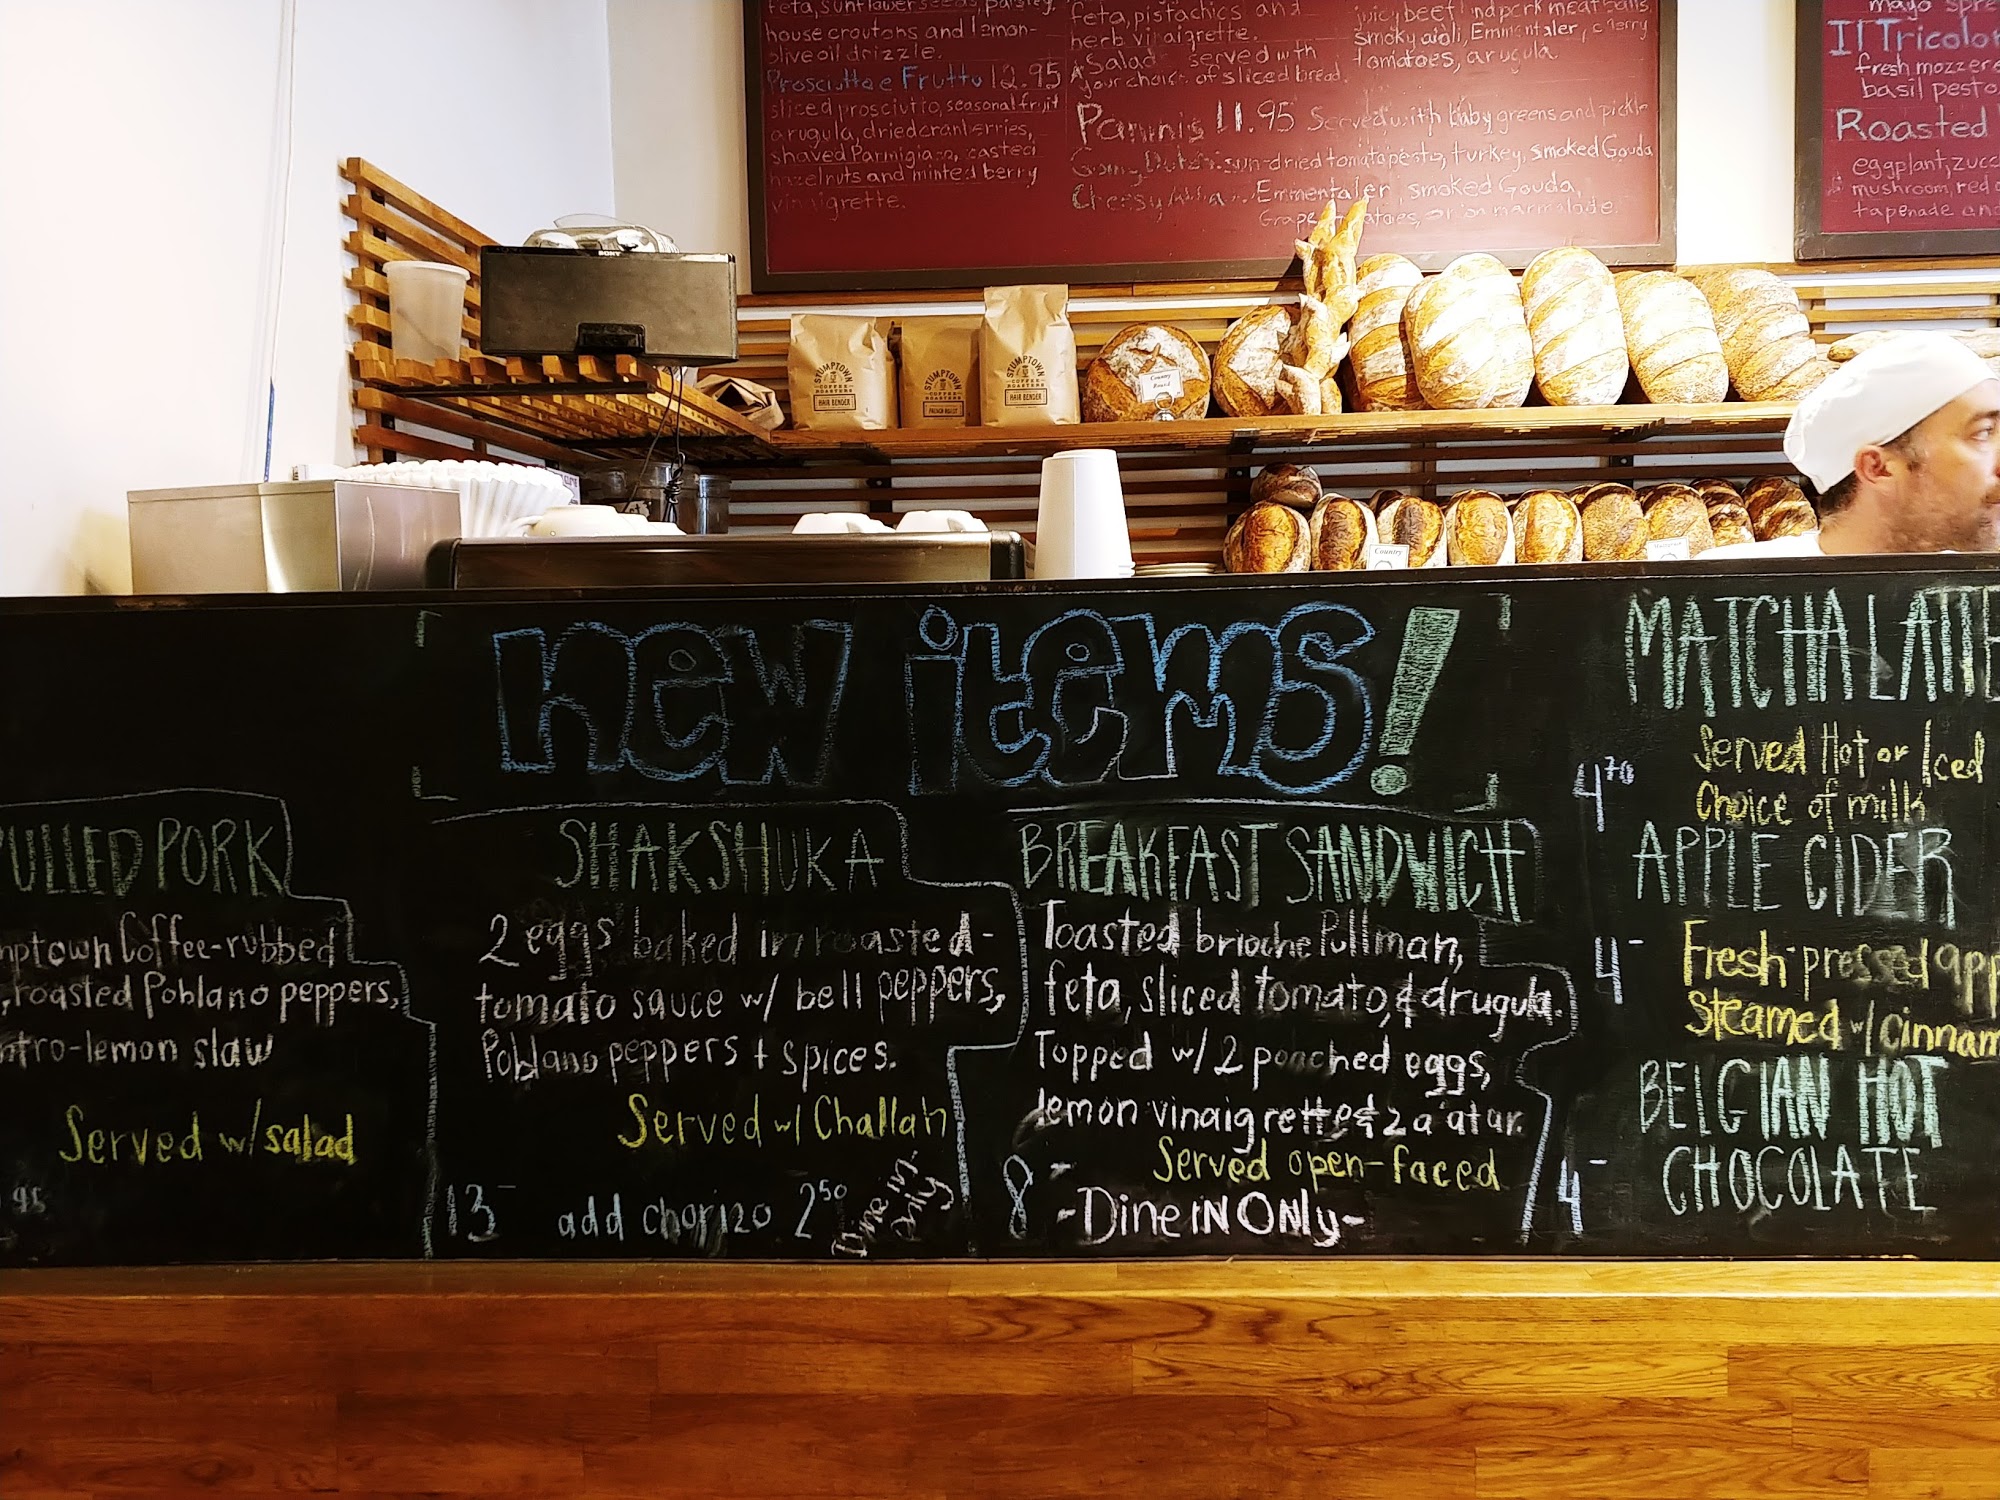 feta, sunflower seeds, parsley,
house croutons and lemon-
olive oil drizzle.
Prosciutto e Frutta 12.95
sliced prosciutto, seasonal fruit
arugula, dried cranberries,
shaved Parmigiano,
hazelnuts and minted berry
vinaigrette.
feta, pistachios and
herb vinaigrette.
*Salad served with
your choice of sliced bread.
juicy beef and pork meatballs,
smoky aioli, Emmentaler, cherry
tomatoes, arugula.
Paninis 11.95 Served with baby greens and pickle
sun-dried tomato pesto, turkey, smoked Gouda
Emmentaler, smoked Gouda,
Grape tomatoes, onion marmalade.
mayo spre
Il Tricolor
fresh mozzare
basil pesto,
Roasted
eggplant, zucc
mushroom, red
tapenade and
SONY
STUMPTOWN
COFFEE
ROASTERS
HAIR BENDER
STUMPTOWN
COFFEE
ROASTERS
FRENCH ROAST
STUMPTOWN
COFFEE
ROASTERS
HAIR BENDER
Country
Round
Country
new items!
PULLED PORK
mptown Coffee-rubbed
, roasted Poblano peppers,
ntro-lemon slaw
Served w/ salad
95
SHAKSHUKA
2 eggs baked in roasted-
tomato sauce w/ bell peppers,
Poblano peppers + spices.
Served w/ Challah
13- add chorizo 2 50
Dine in only
BREAKFAST SANDWICH
Toasted brioche Pullman,
feta, sliced tomato, & arugula.
Topped w/ 2 poached eggs,
lemon vinaigrette & za'atar.
Served open-faced
8-
-Dine IN ONly-
MATCHA LATTE
Served Hot or Iced
4 70
Choice of milk
APPLE CIDER
4-
Fresh-pressed app
Steamed w/ cinnam
BELGIAN HOT
CHOCOLATE
4-